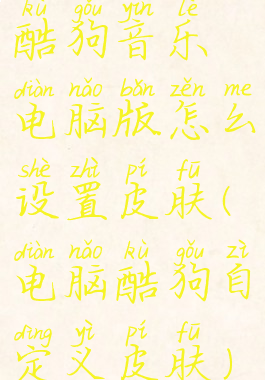 kù gǒu yīn lè
酷狗音乐
diàn nǎo bǎn zěn me
电脑版怎么
shè zhì pí fū
设置皮肤(
diàn nǎo kù gǒu zì
电脑酷狗自
dìng yì pí fū
定义皮肤)